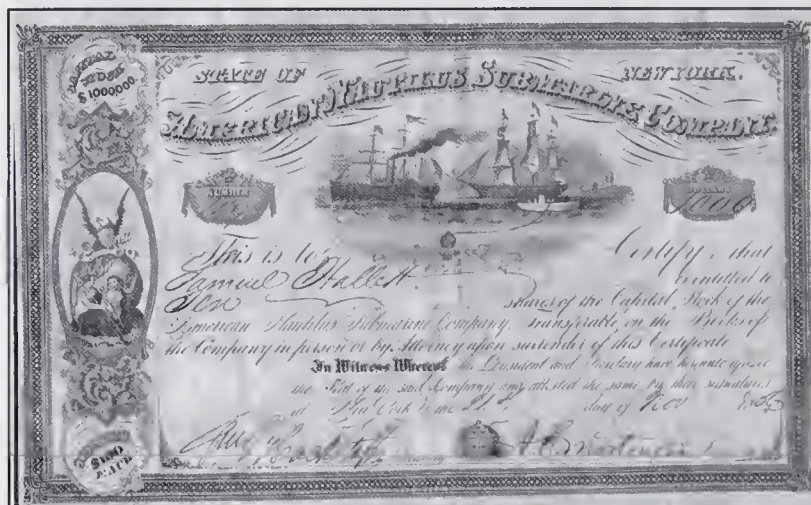 CAPITAL STOCK
$1000000.
STATE OF NEW YORK.
AMERICAN NAUTILUS SUBMARINE COMPANY.
NUMBER
DOLLARS
1000
This is to Certify, that
Samuel Hallett is entitled to
Ten shares of the Capital Stock of the
American Nautilus Submarine Company, transferable on the Books of
the Company in person or by Attorney upon surrender of this Certificate
In Witness Whereof the President and Secretary have hereunto affixed
the Seal of the said Company and attested the same by their signatures
at New York the day of Nov
$100
EACH